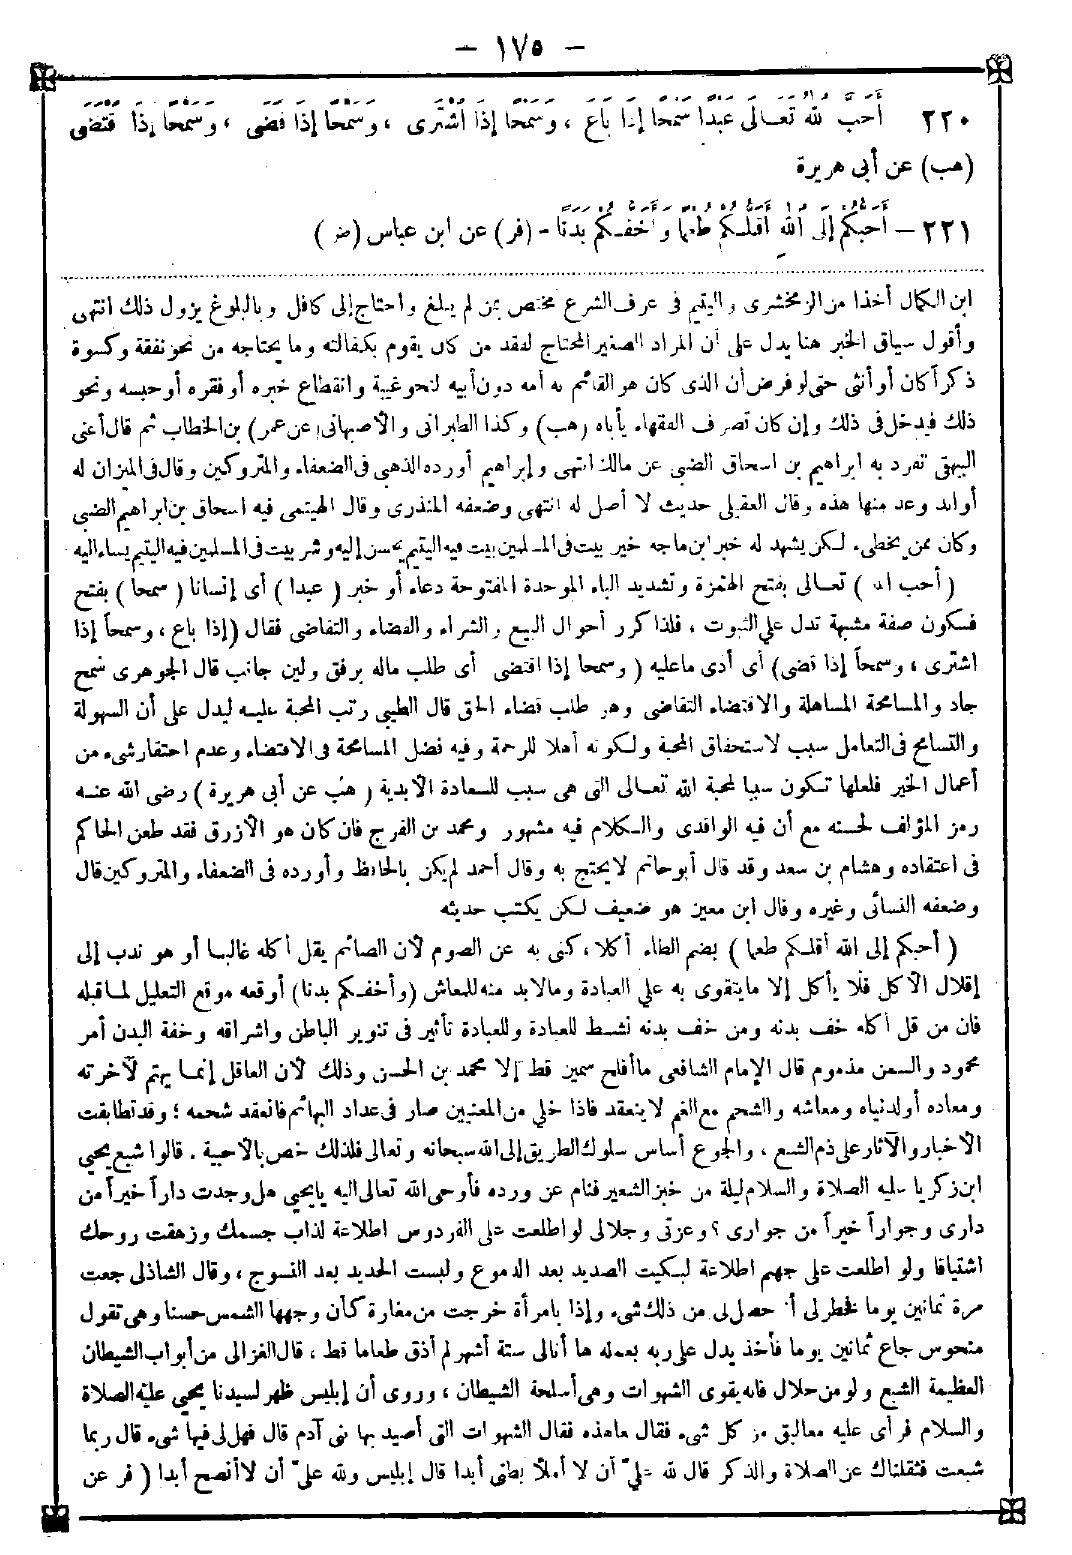 - ١٧٥ -
٢٢٠ أَحَبَّ اللهُ تَعَالَى عَبْدًا سَمْحًا إِذَا بَاعَ ، وَسَمْحًا إِذَا اشْتَرَى ، وَسَمْحًا إِذَا قَضَى ، وَسَمْحًا إِذَا اقْتَضَى
(هب) عن أبى هريرة
٢٢١ - أَحَبُّكُمْ إِلَى اللهِ أَقَلُّكُمْ طُعْمًا وَأَخَفُّكُمْ بَدَنًا - (فر) عن ابن عباس (ض)
ابن الكمال أخذا من الزمخشرى واليتيم فى عرف الشرع مختص بمن لم يبلغ واحتاج إلى كافل وبالبلوغ يزول ذلك انتهى
وأقول سياق الخبر هنا يدل على أن المراد الصغير المحتاج لفقد من كان يقوم بكفالته وما يحتاجه من نحو نفقة وكسوة
ذكراً كان أو أنثى حتى لو فرض أن الذى كان هو القائم به أمه دون أبيه لنحو غيبة وانقطاع خبره أو فقره أو حبسه ونحو
ذلك فيدخل فى ذلك وإن كان تصرف الفقهاء يأباه (هب) وكذا الطبرانى والأصبهانى (عن عمر) بن الخطاب ثم قال أعنى
البيهقى تفرد به ابراهيم بن اسحاق الضبى عن مالك انتهى وإبراهيم أورده الذهبى فى الضعفاء والمتروكين وقال فى الميزان له
أوابد وعد منها هذه وقال العقيلى حديث لا أصل له انتهى وضعفه المنذرى وقال الهيتمى فيه اسحاق بن ابراهيم الضبى
وكان ممن يخطىء لكن يشهد له خبر ابن ماجه خير بيت فى المسلمين بيت فيه اليتيم يحسن إليه وشر بيت فى المسلمين فيه اليتيم يساء اليه
( أحب الله ) تعالى بفتح الهمزة وتشديد الباء الموحدة المفتوحة دعاء أو خبر ( عبدا ) أى إنسانا ( سمحا ) بفتح
فسكون صفة مشبهة تدل على الثبوت ، فلذا كرر أحوال البيع والشراء والقضاء والتقاضى فقال (إذا باع ، وسمحاً إذا
اشترى ، وسمحاً إذا قضى) أى أدى ما عليه ( وسمحا إذا اقتضى أى طلب ماله برفق ولين جانب قال الجوهرى سمح
جاد والمسامحة المساهلة والاقتضاء التقاضى وهو طلب قضاء الحق قال الطيبى رتب المحبة عليه ليدل على أن السهولة
والتسامح فى التعامل سبب لاستحقاق المحبة ولكونه أهلا للرحمة وفيه فضل المسامحة فى الاقتضاء وعدم احتقار شىء من
أعمال الخير فلعلها تكون سببا لمحبة الله تعالى التى هى سبب للسعادة الأبدية ( هب عن أبى هريرة ) رضى الله عنه
رمز المؤلف لحسنه مع أن فيه الواقدى والكلام فيه مشهور ومحمد بن الفرج فان كان هو الأزرق فقد طعن الحاكم
فى اعتقاده وهشام بن سعد وقد قال أبو حاتم لا يحتج به وقال أحمد لم يكن بالحافظ وأورده فى الضعفاء والمتروكين قال
وضعفه النسائى وغيره وقال ابن معين هو ضعيف لكن يكتب حديثه
( أحبكم إلى الله أقلكم طعما ) بضم الطاء أكلا ، كنى به عن الصوم لأن الصائم يقل أكله غالبا أو هو ندب إلى
إقلال الأكل فلا يأكل إلا ما يتقوى به على العبادة وما لابد منه للمعاش (وأخفكم بدنا) أوقعه موقع التعليل لما قبله
فان من قل أكله خف بدنه ومن خف بدنه نشط للعبادة وللعبادة تأثير فى تنوير الباطن واشراقه وخفة البدن أمر
محمود والسمن مذموم قال الإمام الشافعى ما أفلح سمين قط إلا محمد بن الحسن وذلك لأن العاقل إنما يهتم لآخرته
ومعاده أو لدنياه ومعاشه والشحم مع الغم لا ينعقد فاذا خلى من المعنيين صار فى عداد البهائم فانعقد شحمه ؛ وقد تطابقت
الأخبار والآثار على ذم الشبع ، والجوع أساس سلوك الطريق إلى الله سبحانه وتعالى فلذلك خص بالأحبية . قالوا شبع يحيى
ابن زكريا عليه الصلاة والسلام ليلة من خبز الشعير فنام عن ورده فأوحى الله تعالى اليه يا يحيى هل وجدت داراً خيراً من
دارى وجواراً خيراً من جوارى ؟ وعزتى وجلالى لو اطلعت على الفردوس اطلاعة لذاب جسمك وزهقت روحك
اشتياقا ولو اطلعت على جهم اطلاعة لبكيت الصديد بعد الدموع ولبست الحديد بعد النسوج ، وقال الشاذلى جعت
مرة ثمانين يوما فخطر لى أن حصل لى من ذلك شىء وإذا بامرأة خرجت من مغارة كأن وجهها الشمس حسنا وهى تقول
منحوس جاع ثمانين يوما فأخذ يدل على ربه بعمله ها أنا لى ستة أشهر لم أذق طعاما قط ، قال الغزالى من أبواب الشيطان
العظيمة الشبع ولو من حلال فانه يقوى الشهوات وهى أسلحة الشيطان ، وروى أن إبليس ظهر لسيدنا يحيى عليه الصلاة
والسلام فرأى عليه معاليق من كل شىء فقال ما هذه فقال الشهوات التى أصيد بها بنى آدم قال فهل لى فيها شىء قال ربما
شبعت فثقلناك عن الصلاة والذكر قال لله علىّ أن لا أملأ بطنى أبدا قال إبليس ولله علىّ أن لا أنصح أبدا ( فر عن